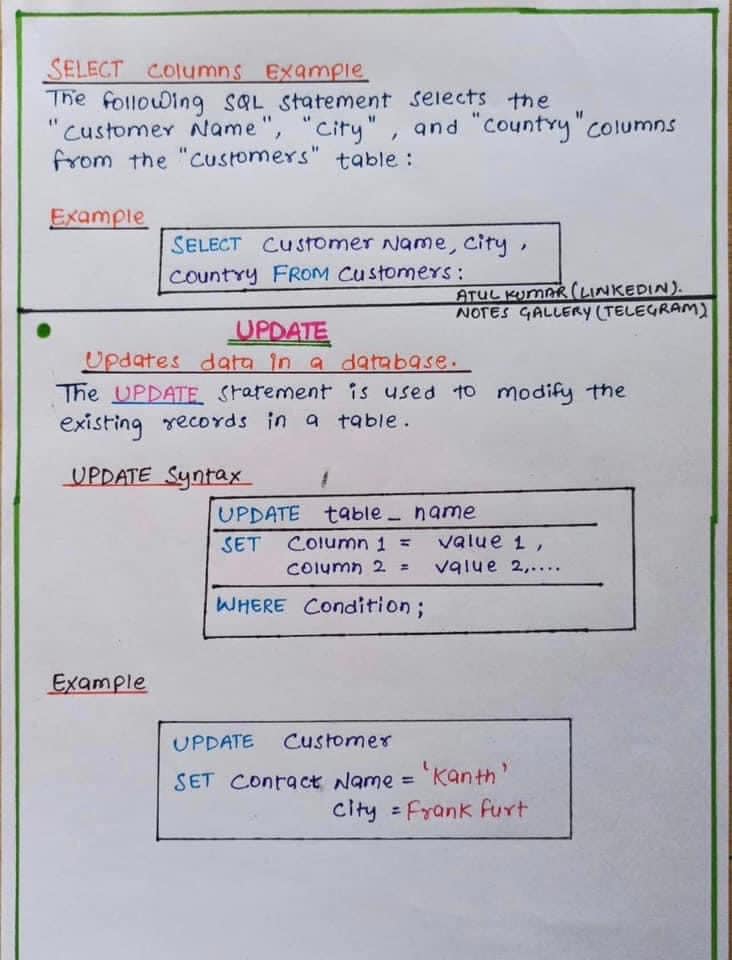 SELECT Columns Example
The following SQL statement selects the
"Customer Name", "City", and "Country" columns
from the "Customers" table:
Example
SELECT Customer Name, City,
Country FROM Customers:
ATUL KUMAR (LINKEDIN).
NOTES GALLERY (TELEGRAM)
UPDATE
Updates data in a database.
The UPDATE statement is used to modify the
existing records in a table.
UPDATE Syntax
UPDATE table_name
SET Column 1 = value 1,
column 2 = value 2,....
WHERE Condition;
Example
UPDATE Customer
SET Contact Name = 'Kanth'
City = Frank furt